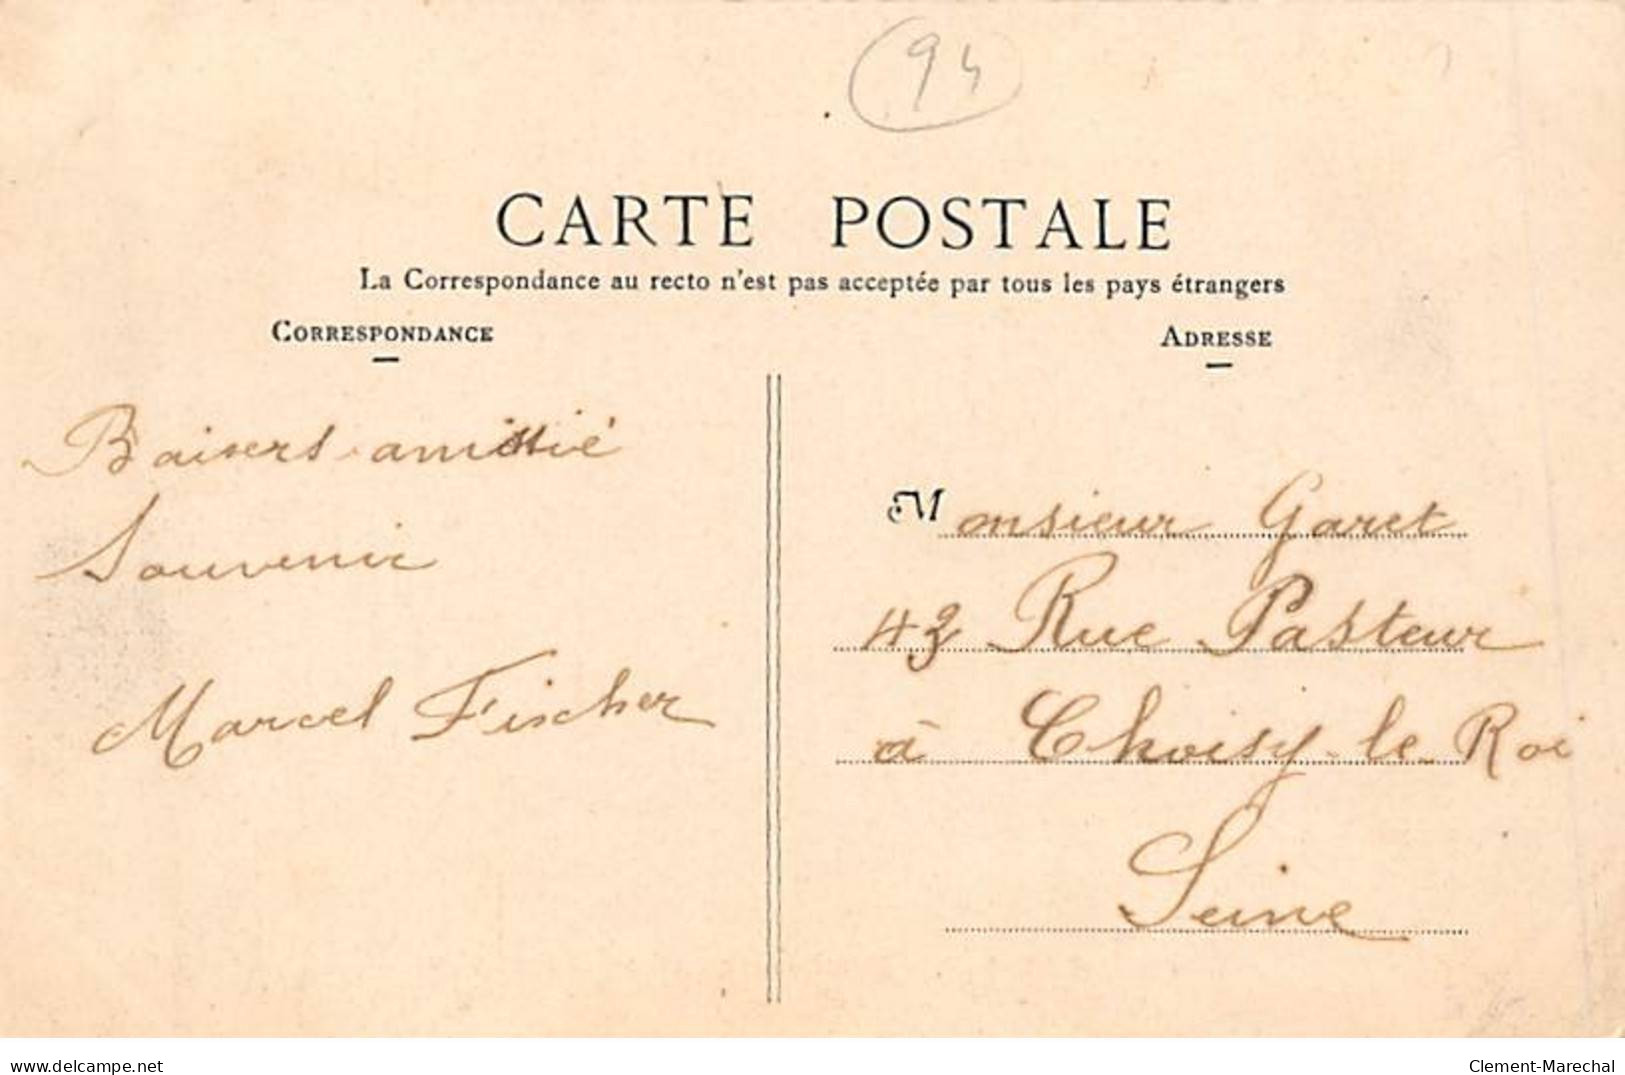 94
CARTE POSTALE
La Correspondance au recto n'est pas acceptée par tous les pays étrangers
CORRESPONDANCE
ADRESSE
Baisers amitié
Souvenir
Marcel Fischer
Monsieur Garet
43 Rue Pasteur
à Choisy-le Roi
Seine
www.delcampe.net
Clement-Marechal